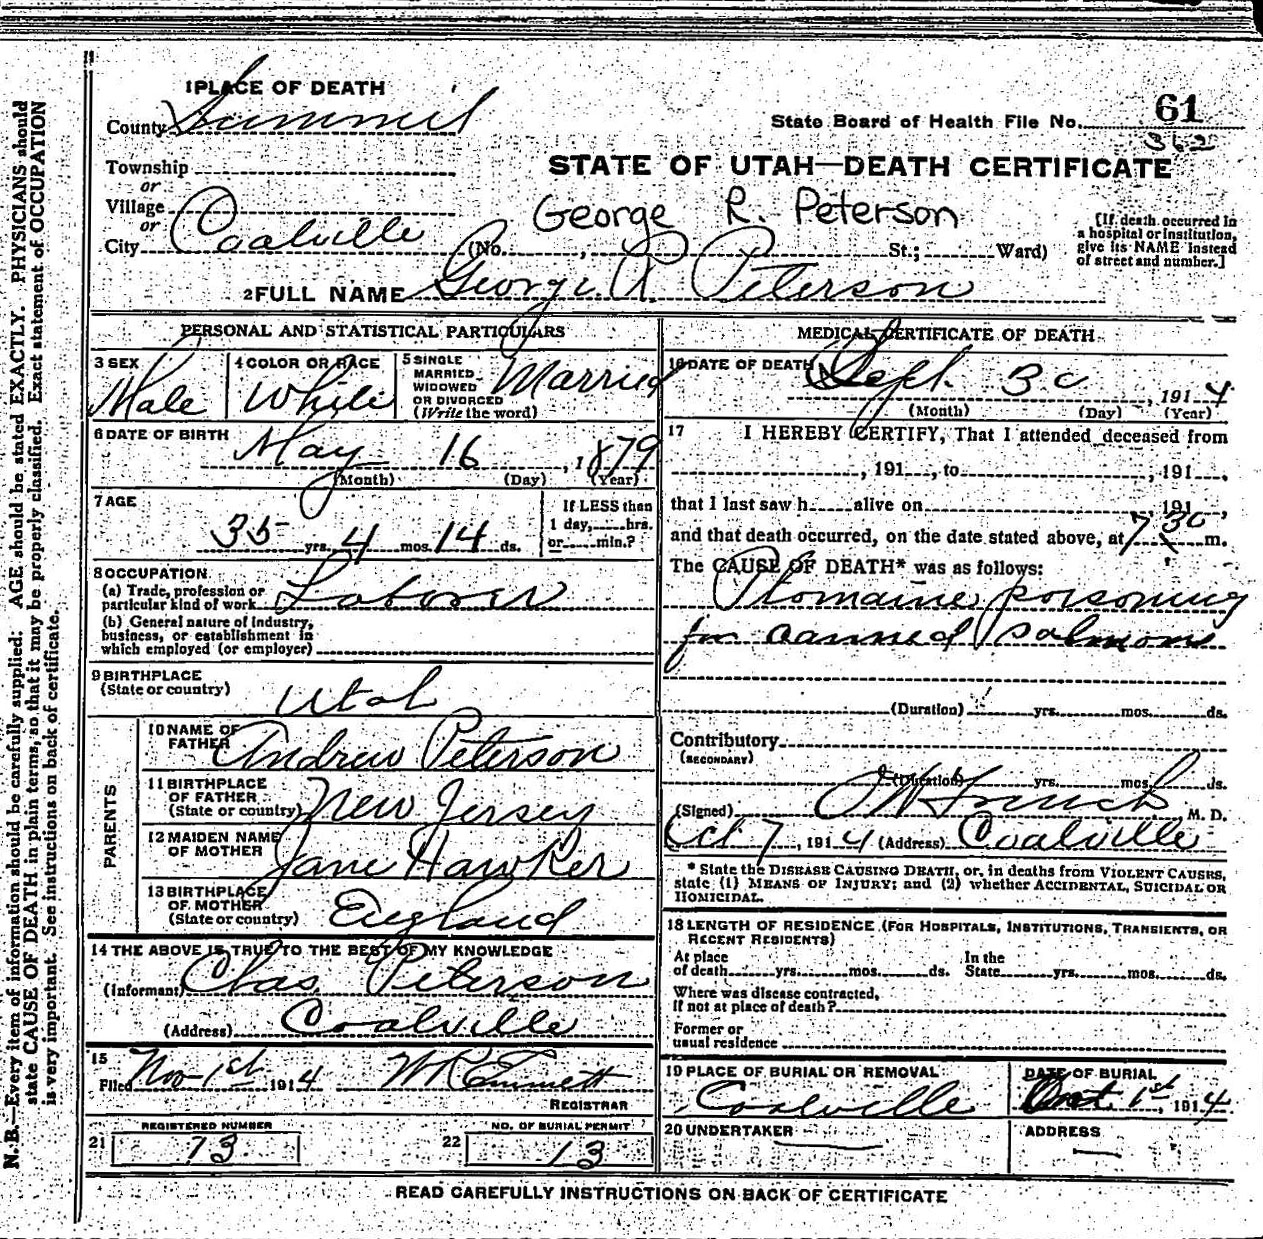 N.B.—Every item of information should be carefully supplied. AGE should be stated EXACTLY. PHYSICIANS should
state CAUSE OF DEATH in plain terms, so that it may be properly classified. Exact statement of OCCUPATION
is very important. See instructions on back of certificate.
1 PLACE OF DEATH
County Summit
State Board of Health File No. 61
362
STATE OF UTAH—DEATH CERTIFICATE
Township
or
Village
or
City Coalville (No. , St.; Ward)
George R. Peterson
[If death occurred in
a hospital or institution,
give its NAME instead
of street and number.]
2 FULL NAME George R. Peterson
PERSONAL AND STATISTICAL PARTICULARS
3 SEX
Male
4 COLOR OR RACE
White
5 SINGLE
MARRIED
WIDOWED
OR DIVORCED
(Write the word)
Married
6 DATE OF BIRTH
May 16, 1879
(Month) (Day) (Year)
7 AGE
35 yrs. 4 mos. 14 ds.
If LESS than
1 day, hrs.
or min.?
8 OCCUPATION
(a) Trade, profession or
particular kind of work Laborer
(b) General nature of industry,
business, or establishment in
which employed (or employer)
9 BIRTHPLACE
(State or country) Utah
PARENTS
10 NAME OF
FATHER Andrew Peterson
11 BIRTHPLACE
OF FATHER
(State or country) New Jersey
12 MAIDEN NAME
OF MOTHER Jane Hawker
13 BIRTHPLACE
OF MOTHER
(State or country) England
14 THE ABOVE IS TRUE TO THE BEST OF MY KNOWLEDGE
(Informant) Chas. Peterson
(Address) Coalville
15
Filed Nov 1st 1914 W R Emmett
REGISTRAR
REGISTERED NUMBER
21 73
NO. OF BURIAL PERMIT
22 13
MEDICAL CERTIFICATE OF DEATH
16 DATE OF DEATH
Sept. 30, 1914
(Month) (Day) (Year)
17 I HEREBY CERTIFY, That I attended deceased from
, 191 , to , 191 .
that I last saw h alive on 191 ,
and that death occurred, on the date stated above, at 7 30 m.
The CAUSE OF DEATH* was as follows:
Ptomaine poisoning
from canned salmon
(Duration) yrs. mos. ds.
Contributory
(SECONDARY)
(Duration) yrs. mos. ds.
(Signed) French M. D.
Oct 7, 1914 (Address) Coalville
* State the DISEASE CAUSING DEATH, or, in deaths from VIOLENT CAUSES,
state (1) MEANS OF INJURY; and (2) whether ACCIDENTAL, SUICIDAL OR
HOMICIDAL.
18 LENGTH OF RESIDENCE (FOR HOSPITALS, INSTITUTIONS, TRANSIENTS, OR
RECENT RESIDENTS)
At place
of death yrs. mos. ds.
In the
State yrs. mos. ds.
Where was disease contracted,
If not at place of death?
Former or
usual residence
19 PLACE OF BURIAL OR REMOVAL
Coalville
DATE OF BURIAL
Oct 1st, 1914
20 UNDERTAKER
ADDRESS
READ CAREFULLY INSTRUCTIONS ON BACK OF CERTIFICATE